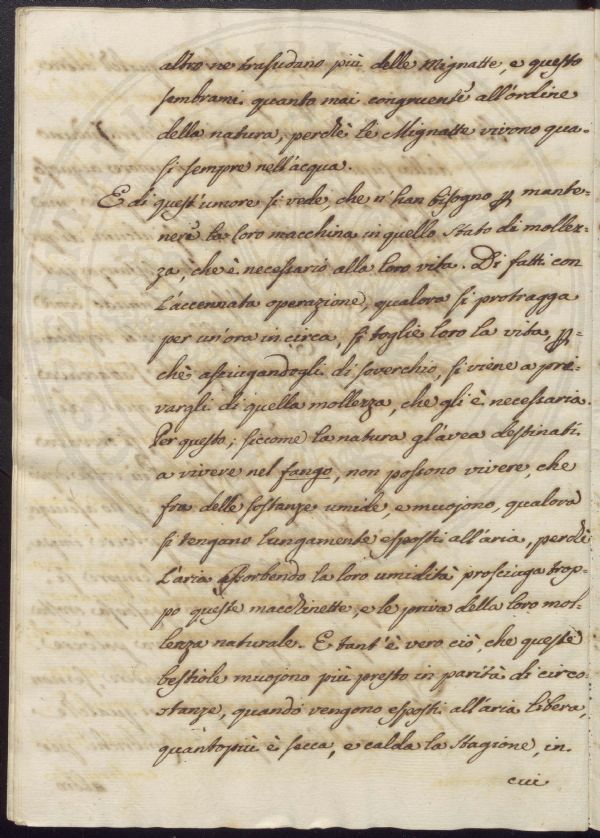 altro ne trasudano più delle Mignatte, e questo
sembrami quanto mai congruente all'ordine
della natura, perchè le Mignatte vivono qua-
si sempre nell'acqua.
E di quest'umore si vede, che n'han bisogno ꝑ mante-
nere la loro macchina in quello stato di mollez-
za, che è necessario alla loro vita. Di fatti con
l'accennata operazione, qualora si protragga
per un'ora in circa, si toglie loro la vita, ꝑ-
chè asciugandogli di soverchio, si viene a pri-
vargli di quella mollezza, che gli è necessaria.
Per questo, siccome la natura gl'avea destinati
a vivere nel fango, non possono vivere, che
fra delle sostanze umide, e muojono, qualora
si tengano lungamente esposti all'aria, perchè
l'aria assorbendo la loro umidità prosciuga trop-
po queste macchinette, e le priva della loro mol-
lenza naturale. E tant'è vero ciò, che queste
bestiole muojono più presto in parità di circo-
stanze, quando vengono esposti all'aria libera,
quantopiù è secca, e calda la stagione, in
cui